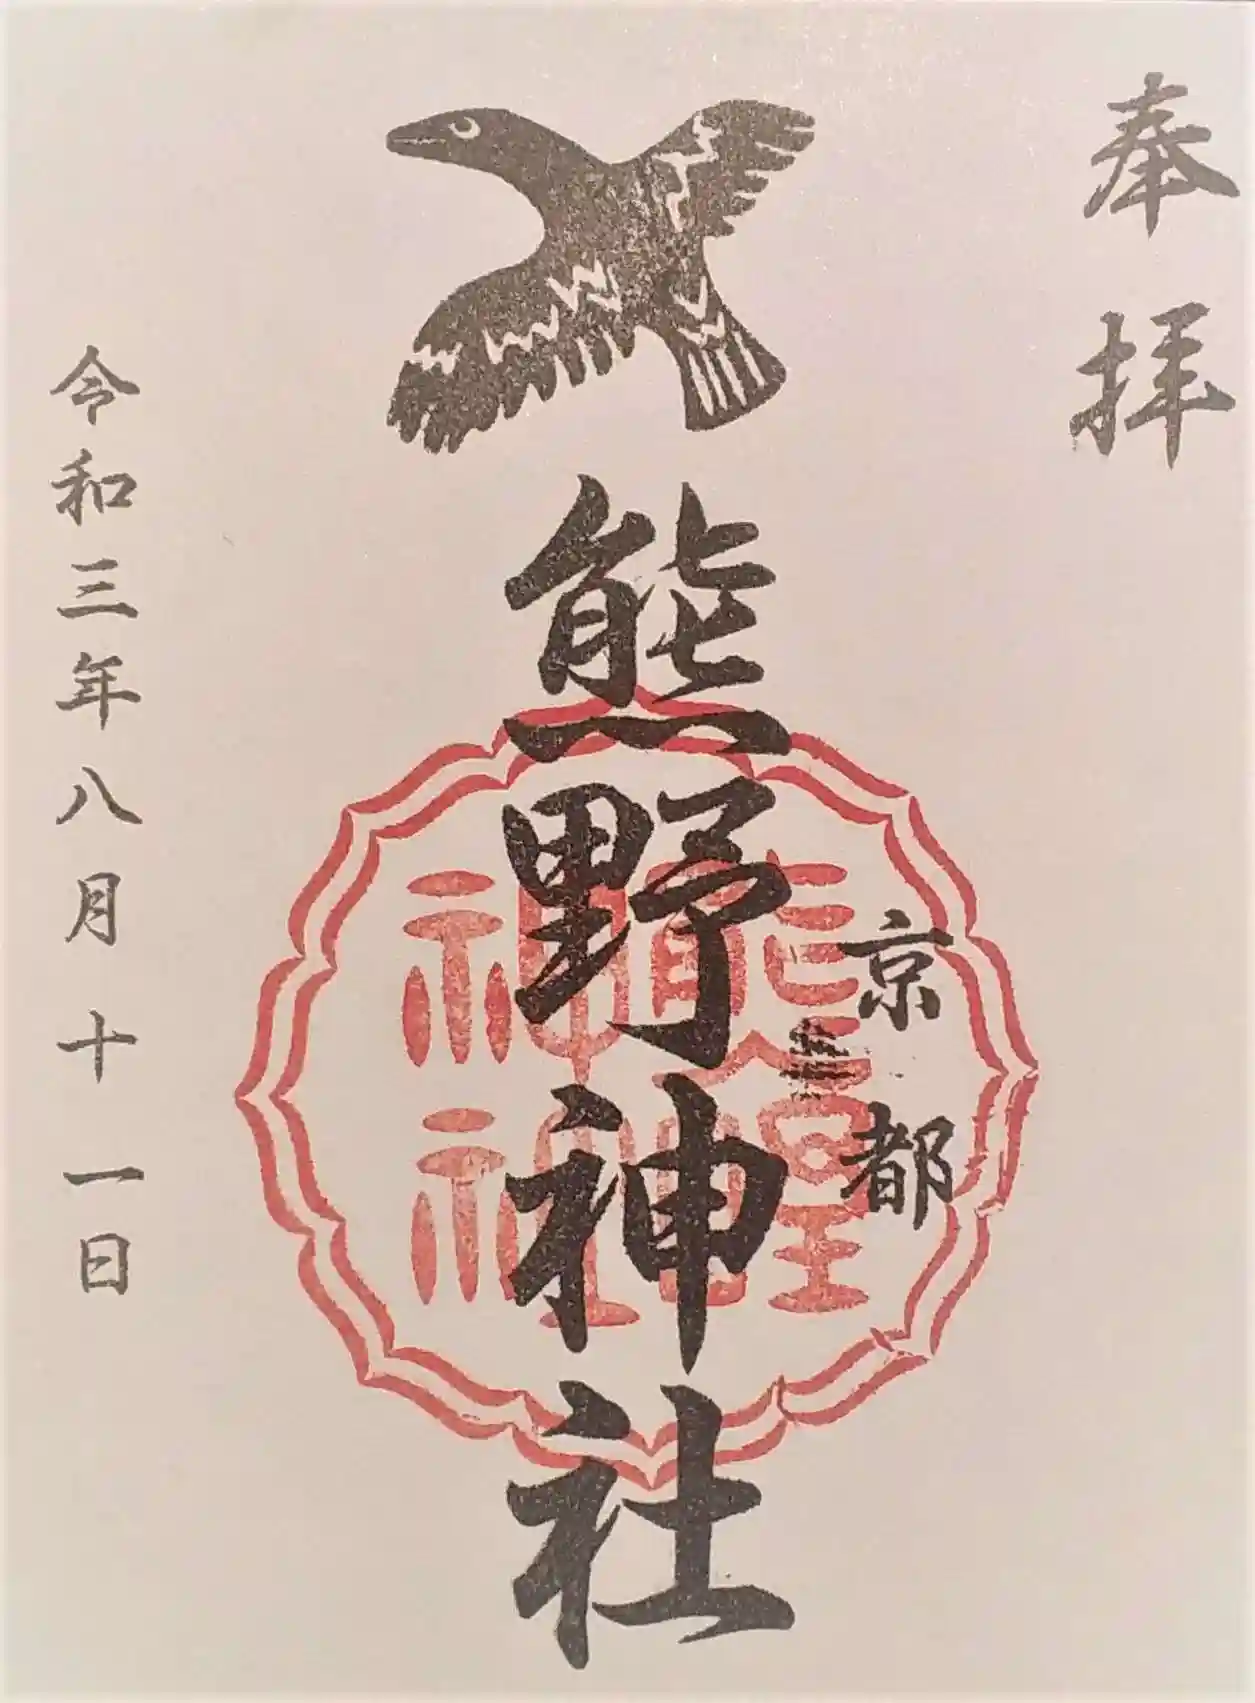 奉拝
京都
熊野神社
熊野
神社
令和三年八月十一日